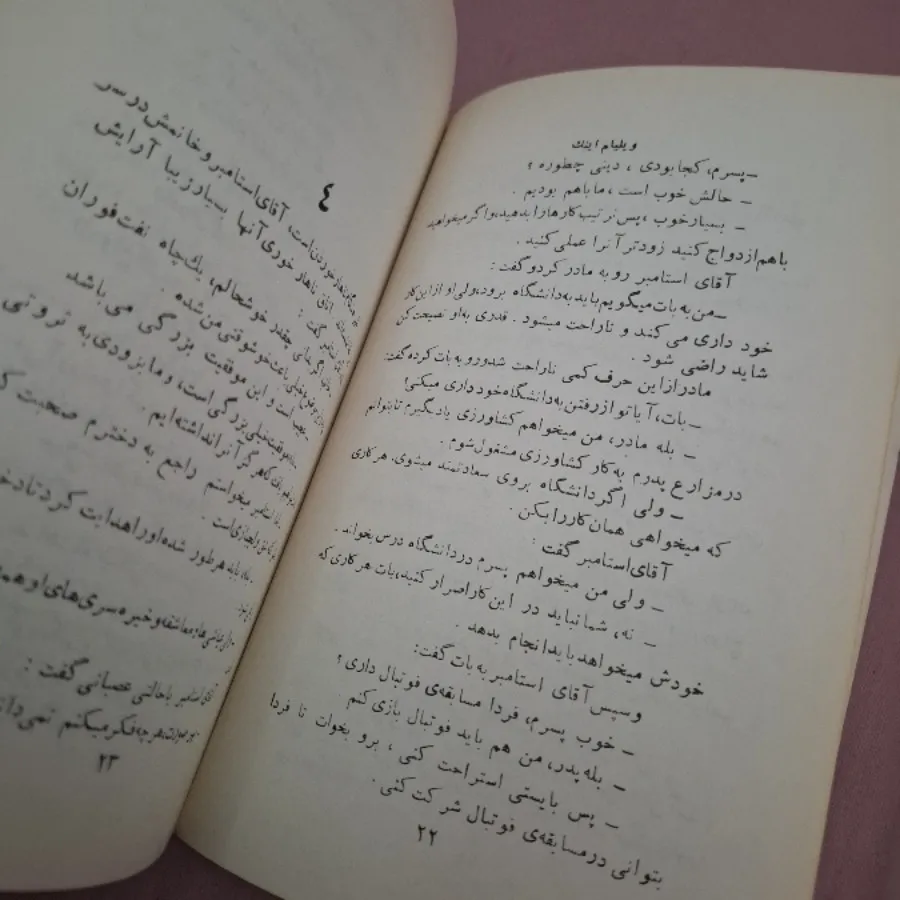 ویلیام اینك
ـ پسرم، کجابودی ، دینی چطوره ؟
ـ حالش خوب است ، ماباهم بودیم .
ـ بسیارخوب ، پس ترتیب کارهارا بدهید، واگر میخواهید
باهم ازدواج کنید زودتر آنرا عملی کنید .
آقای استامبر رو به مادر کرد و گفت :
ـ من به بات میگویم باید به دانشگاه برود، ولی او از این کار
خود داری می کند و ناراحت میشود . قدری به او نصیحت کن
شاید راضی شود .
مادر از این حرف کمی ناراحت شد و رو به بات کرده گفت:
ـ بات، آیا تو از رفتن به دانشگاه خود داری میکنی؟
ـ بله مادر، من میخواهم کشاورزی یاد بگیرم تا بتوانم
در مزارع پدرم به کار کشاورزی مشغول شوم .
ـ ولی اگر دانشگاه بروی سعادتمند میشوی. هر کاری
که میخواهی همان کار را بکن .
آقای استامبر گفت :
ـ ولی من میخواهم پسرم در دانشگاه درس بخواند .
ـ نه، شما نباید در این کار اصرار کنید، بات هر کاری که
خودش میخواهد باید انجام بدهد .
و سپس آقای استامبر به بات گفت:
ـ خوب پسرم، فردا مسابقه‌ی فوتبال داری ؟
ـ بله پدر، من هم باید فوتبال بازی کنم
ـ پس بایستی استراحت کنی ، برو بخواب تا فردا
بتوانی در مسابقه‌ی فوتبال شرکت کنی .
۲۲
٤
است، آقای استامبر و خانمش در سر
اتاق ناهار خوری آنها بسیار زیبا آرایش
گفت :
چقدر خوشحالم، یك چاه نفت فوران
باعث خوشوقتی من شده .
است و این موفقیت بزرگی می باشد
بزرگی است، و ما بزودی به ثروتی
هرگز آنرا نداشته‌ایم .
میخواستم راجع به دخترم صحبت
است .
باید هر طور شده او را هدایت کرد تا
معاشقه و خیره سری های او
آقای استامبر با حالتی عصبانی گفت :
هر چه فکر میکنم نمی
۲۳